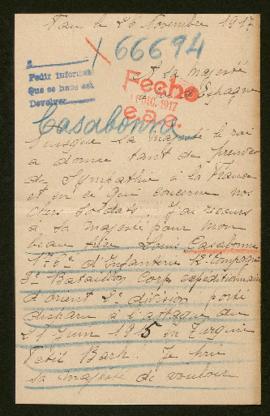 Pau le 26 Novembre 1917
1/66694
Pedir informes
Que se hace así
Devolver
A sa majesté
d'Espagne
Fecho
DIC. 1917
Casabonne
Puisque sa majesté le roi
a donné tant de preuves
de sympathie à la France
et en ce qui concerne nos
chers soldats j'ai recours
à sa majesté pour mon
beau Louis Casabonne
176e d'Infanterie 12e Compagnie
3e Bataillon Corps expéditionnaire
d'orient 2e division porté
disparu à l'attaque du
21 Juin 1915 en Turquie
Je
sa majesté de vouloir